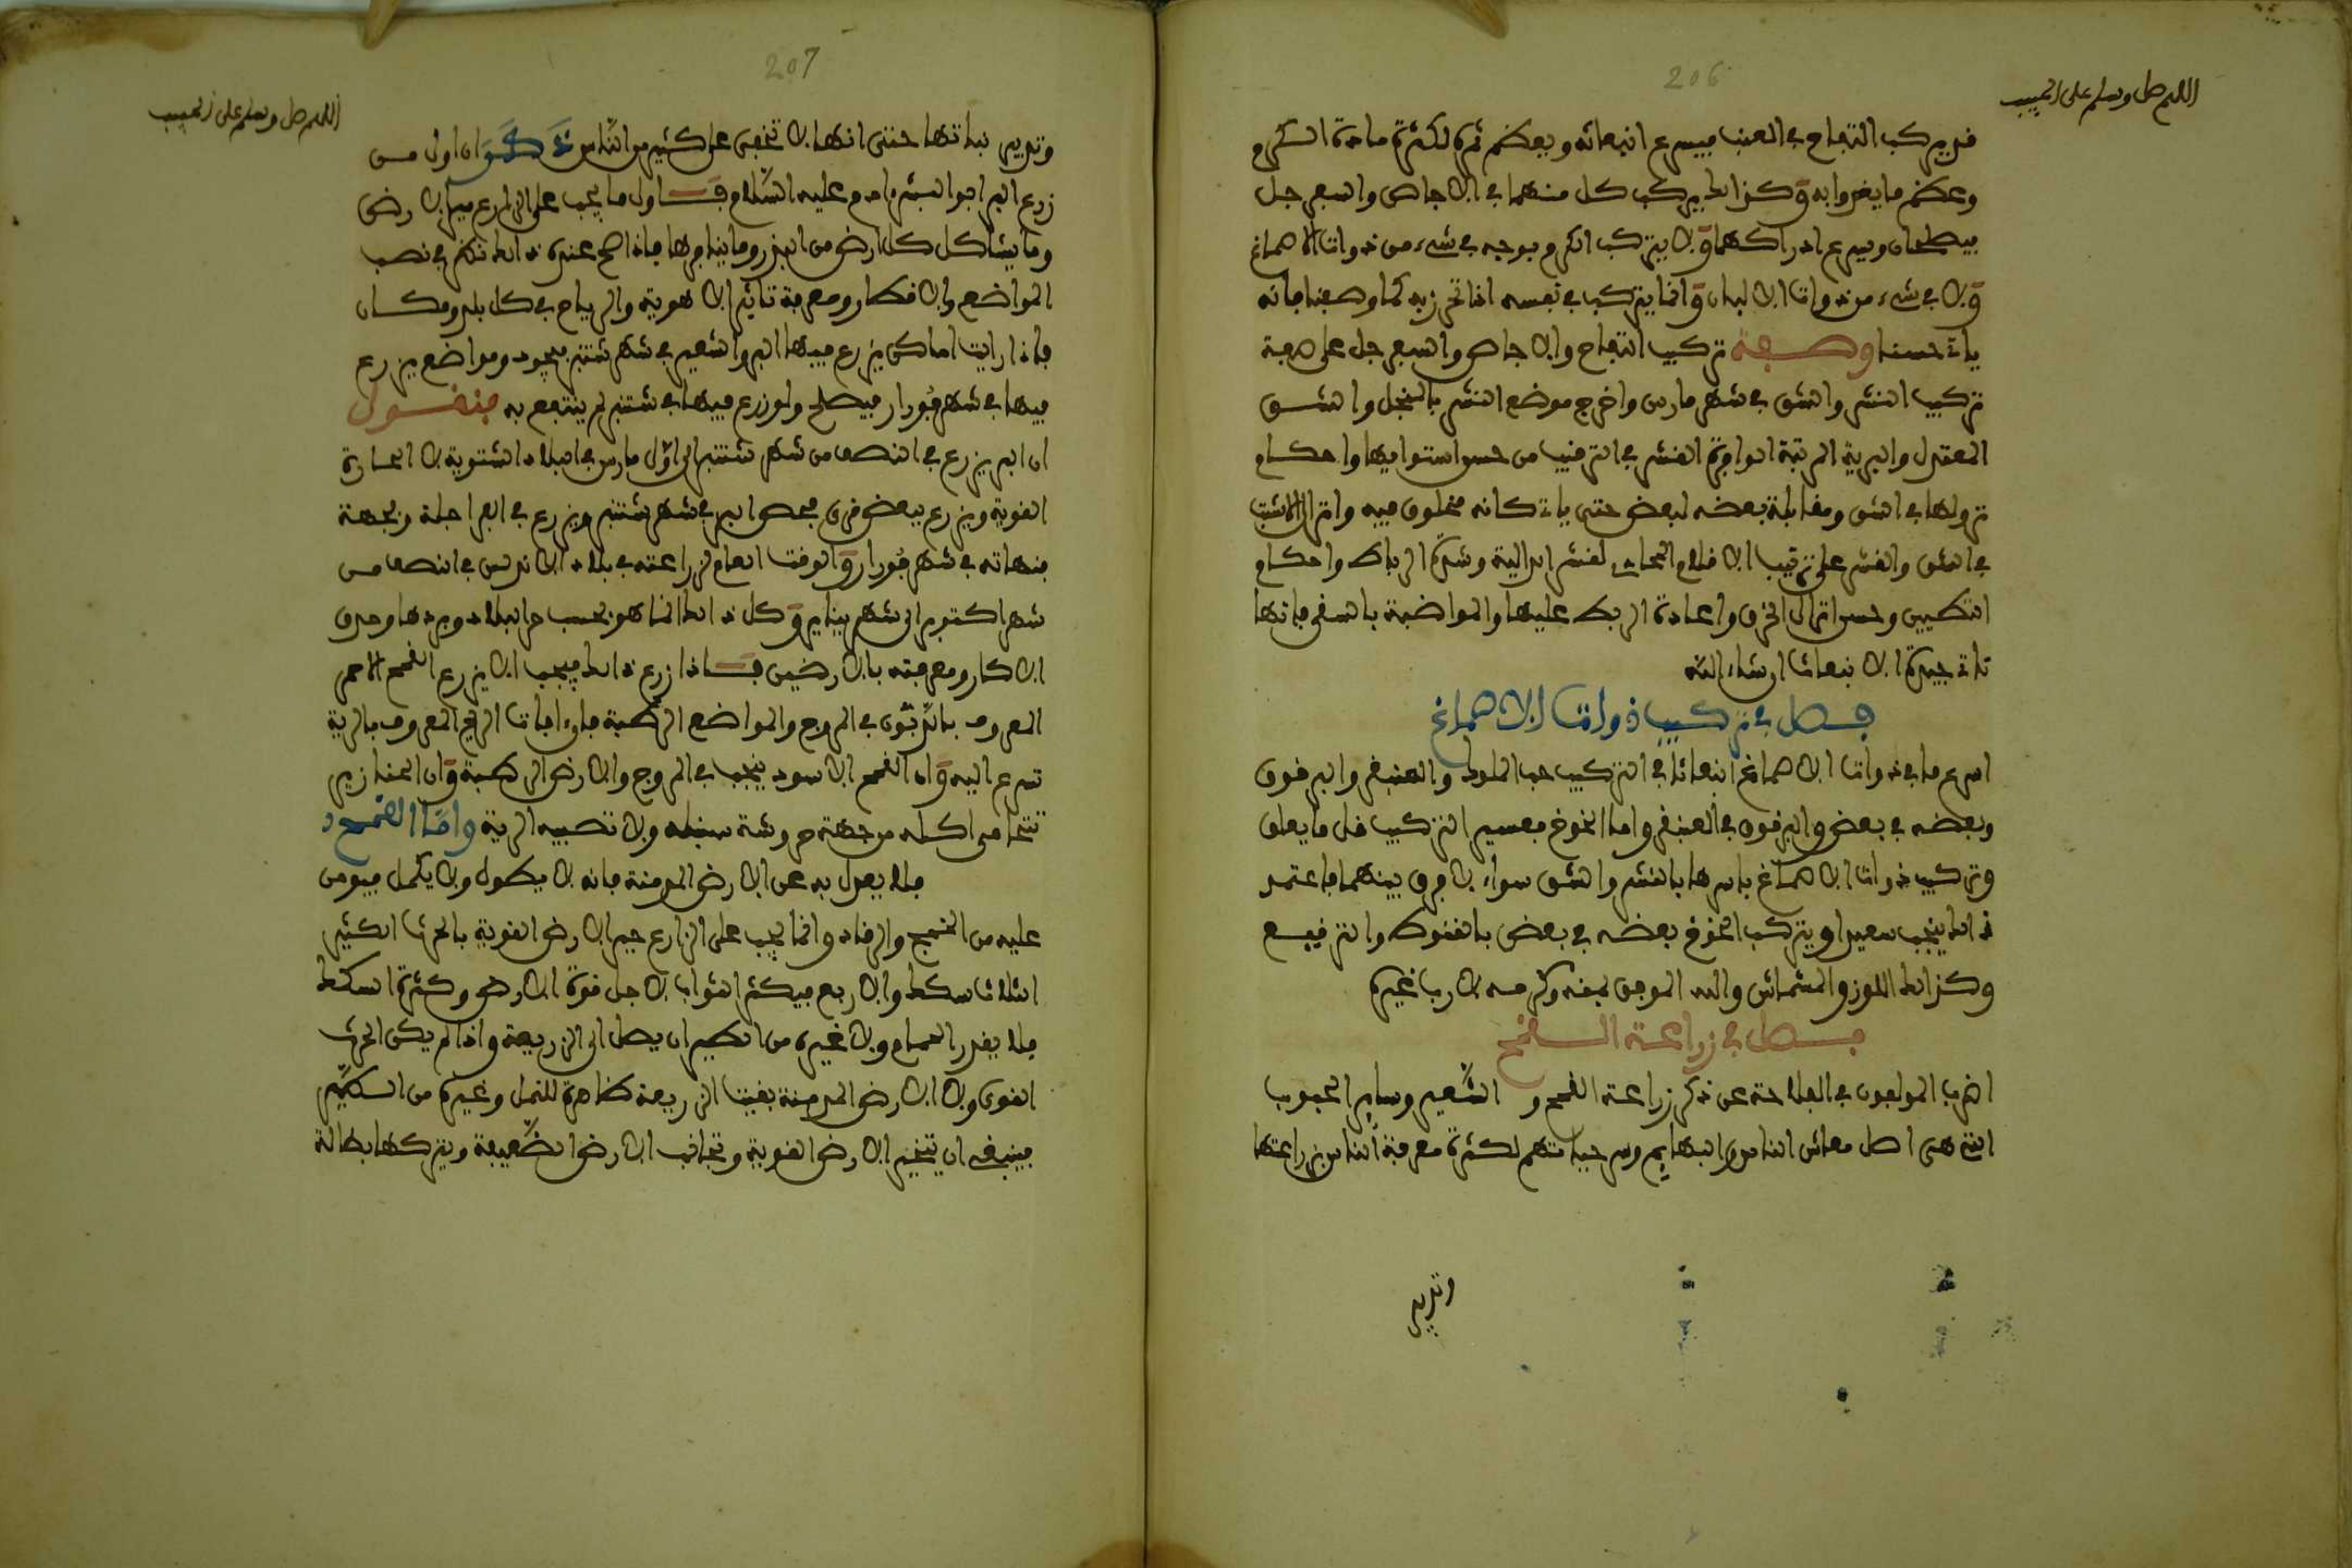 206
اللهم صل وسلم على الحبيب
قد يركب التفاح في العنب فيسرع انبعاثه ويعظم ثمره لكثرة مادة الكرم
وعظم ما يغذوا به وكذالك يركب كل منهما في الاجاص والسفرجل
فيطعمان ويسرع ادراكهما ولا يتركب الكرم بوجه في شيء من ذوات الاصماغ
ولا في شيء من ذوات الالبان وانما يتركب في نفسه اذا تحرز به كما وصفنا فانه
يات حسنا وصفة تركيب التفاح والاجاص والسفرجل على صفة
تركيب النشر والشق في شهر مارس واخرج موضع النشر بالمنجل والشق
المعتدل والبرية المرتبة الوافرة القشر في الترقيب من حسن استوايها واحكام
نزولها في الشق ومقابلة بعضه لبعض حتى يات كانه مخلوق فيه وانزال
في الشق والقشر على ترتيب الاقلام لقشر الدالية وشدة الرباط واحكام
التطيين وحسن انزال الخرق واعادة الربط عليها والمواضبة بالسقي فانها
تات جيدة الانبعاث ان شاء الله
فصل في تركيب ذوات الاصماغ
اسرع ما في ذوات الاصماغ انبعاثا في التركيب حب الملوك والعبقر والبرقوق
وبعضه في بعض والبرقوق في العبقر واما الخوخ فعسير التركيب قل ما يعلق
وتركيب ذوات الاصماغ باسرها بالنشر والشق سواء لا فرق بينهما فاعتمد
ذالك ينجب سعيدا ويتركب الخوخ بعضه في بعض بالقنوط والترقيع
وكذالك اللوز والمشماش والله الموفق بمنه وكرمه لا رب غيره
فصل في زراعة القمح
اضرب المولعون في الفلاحة عن ذكر زراعة القمح و الشعير وساير الحبوب
التي هي اصل معاش الناس والبهايم وسر حياتهم لكثرة معرفة الناس بزراعتها
وتدبير
207
اللهم صل وسلم على الحبيب
وتدبير نباتها حتى انها لا تخفى على كثير من الناس ان اول من
زرع البر ابوا البشر ءادم عليه السلام اول ما يجب على الزارع ميز الارض
وما يشاكل كل ارض من البذر وما ينافرها فاذا صح عنده ذالك نظر في نصب
المواضع والاقطار ومعرفة تاثير الاهوية والرياح في كل بلد ومكان
فاذا رايت اماكن يزرع فيها البر والشعير في شهر شتنبر فيجود ومواضع يزرع
فيها في شهر فورار فيصلح ولو زرع فيها في شتنبر لم ينتفع به فنقول
ان البر يزرع في النصف من شهر شتنبر الى اول مارس في البلاد الشتوية لا الحارة
القوية ويزرع ببعض قرى فحص البر في شهر شتنبر ويزرع في البراجلة وبجهة
بنهاته في شهر فورار والوقت العام لزراعته في بلاد الاندلس في النصف من
شهر اكتوبر الى شهر يناير وكل ذالك انما هو بحسب حر البلاد وبردها وحذق
الاكار ومعرفته بالارضين فاذا زرع ذالك فيجب الا يزرع القمح الاحمر
المعروف بالربون في المروج والمواضع الرطبة فان افات الريح المعروف بالرية
تسرع اليه وان القمح الاسود ينجب في المروج والارض الرطبة وان الخنازير
تتحامى اكله من جهة حروشة سنبله ولا تصيبه الرية واما القمح
فلا يعدل به عن الارض المدمنة فانه لا يطول ولا يكمل فيومن
عليه من الضجج والرقاد وانما يجب على الزارع حير الارض القوية بالحرث الكثير
الثلاث سكك والاربع فيكثر الثواب لاجل قوة الارض وكثرة السكك
فلا يقدر الحمام ولا غيره من الطير ان يصل الى الزريعة واذا لم يكن الحرث
القوى ولا الارض المدمنة بقيت الزريعة ظاهرة للنمل وغيره من الطير
فينبغي ان يتخير الارض القوية وتجانب الارض الضعيفة ويتركها بطالة